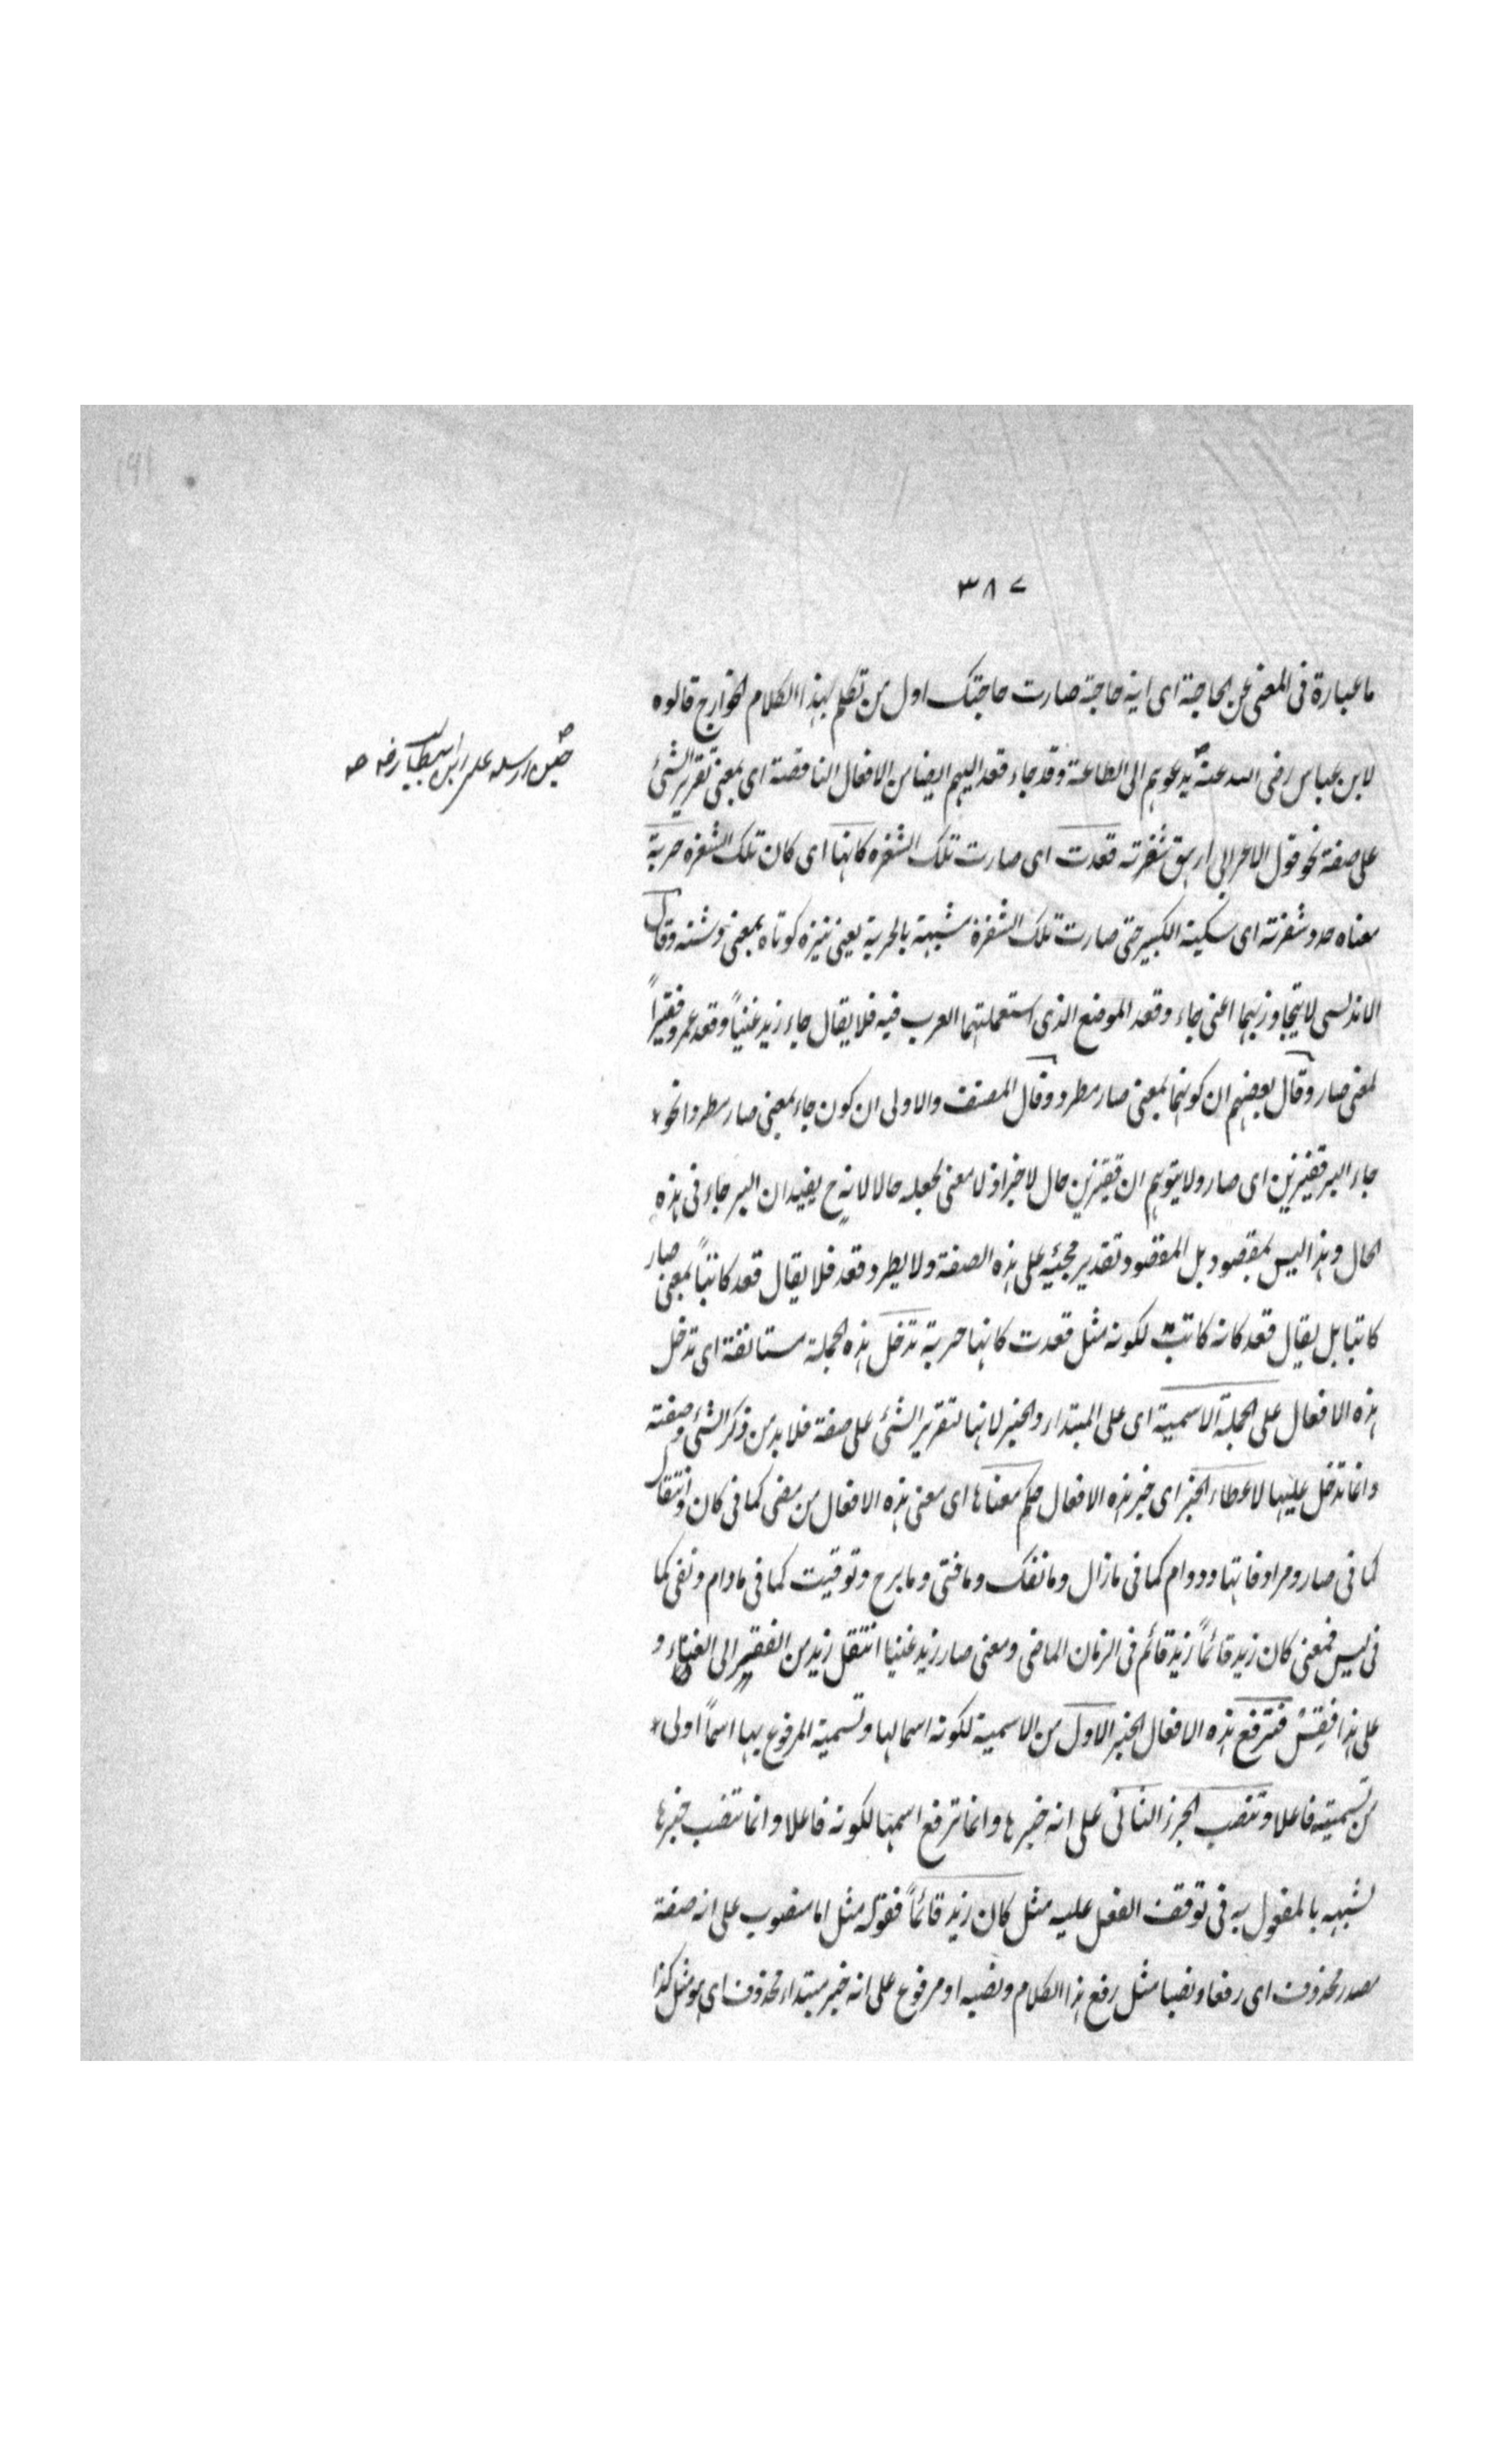 ١٩١
٣٨٧
ما عبارة فى المعنى عن الحاجة اى اية حاجة صارت حاجتك اول من تكلم بهذا الكلام الخوارج قالوه
لابن عباس رضى الله عنه يدعوهم الى الطاعة وقد جاء قعد اليهم ايضا من الافعال الناقصة اى بمعنى تقرير الشئ
حين ارسله على ابن ابيطالب رضه صه
على صفة نحو قول الاعرابى ارهق شفرته قعدت اى صارت تلك الشفرة كانها اى كان تلك الشفرة حربة
معناه حد وشفرته اى سكينه الكبير حتى صارت تلك الشفرة مشبهة بالحربة يعنى نيزه كوتاه بمعنى وشنه وقال
الاندلسى لا يتجاوز بهما اعنى جاء وقعد الموضع الذى استعملتهما العرب فيه فلا يقال جاء زيد غنياً وقعد عمرو فقيراً
بمعنى صار وقال بعضهم ان كونهما بمعنى صار مطرد وقال المصنف والاولى ان كون جاء بمعنى صار مطردا نحو
جاء البر قفيزين اى صار ولا يتوهم ان قفيزين حال لا خبر اذ لا معنى لجعله حالا لانه ح يفيد ان البر جاء فى هذه
الحال وهذا ليس بمقصود بل المقصود تقدير مجئيه على هذه الصفة ولا يطرد قعد فلا يقال قعد كاتباً بمعنى صار
كاتبا بل يقال قعد كانه كاتب لكونه مثل قعدت كانها حربة تدخل هذه الجملة مستانفة اى تدخل
هذه الافعال على الجملة الاسمية اى على المبتداء والخبر لانها لتقرير الشئ على صفة فلا بد من ذكر الشئ وصفته
وانما تدخل عليها لاعطاء الخبر اى خبر هذه الافعال حكم معناها اى معنى هذه الافعال من مضى كما فى كان وانتقال
كما فى صار ومرادفاتها ودوام كما فى مازال وما نفك وما فتى وما برح وتوقيت كما فى مادام ونفى كما
فى ليس فمعنى كان زيد قائماً زيد قائم فى الزمان الماضى ومعنى صار زيد غنيا انتقل زيد من الفقر الى الغناء و
على هذا فقس فترفع هذه الافعال الخبر الاول من الاسمية لكونه اسما لها وتسمية المرفوع بها اسماً اولى
من تسميته فاعلا وتنصب الجزء الثانى على انه خبرها وانما ترفع اسمها لكونه فاعلا وانما تنصب خبرها
لشبهه بالمفعول به فى توقف الفعل عليه مثل كان زيد قائماً فقوله مثل اما منصوب على انه صفة
مصدر محذوف اى رفعا ونصبا مثل رفع هذا الكلام ونصبه او مرفوع على انه خبر مبتداء محذوف اى هو مثل كذا